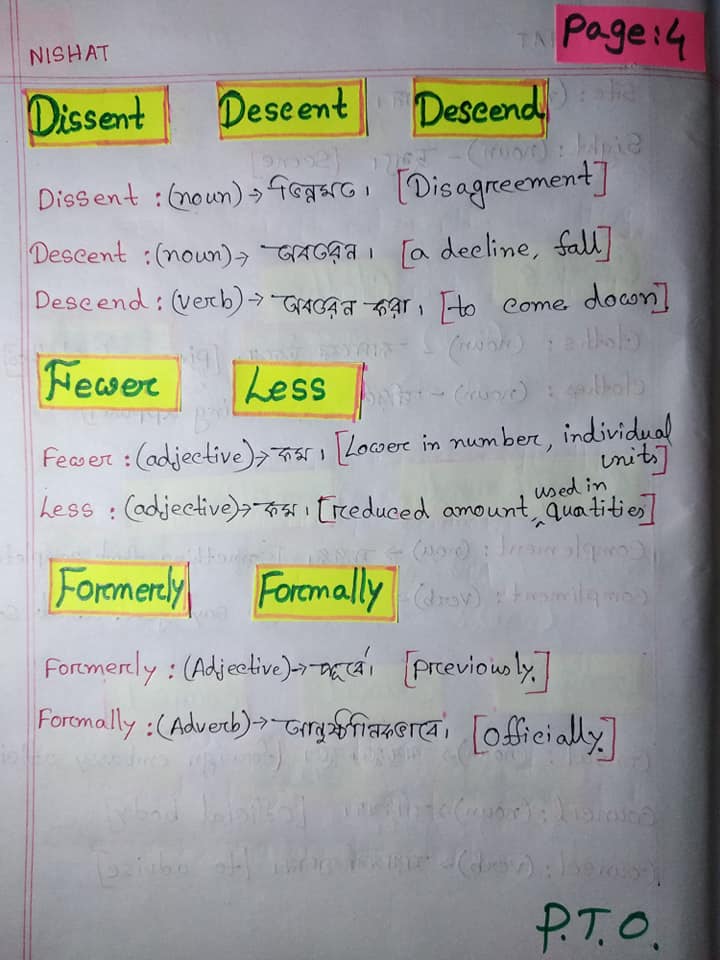 Page:4
NISHAT
Dissent Descent Descend
Dissent : (noun) → ভিন্নমত। [Disagreement]
Descent : (noun) → অবতরন। [a decline, fall]
Descend : (verb) → অবতরন করা। [to come down]
Fewer Less
Fewer : (adjective) → কম। [Lower in number, individual units]
Less : (adjective) → কম। [reduced amount used in quatities]
Formerly Formally
Formerly : (Adjective) → পূর্বে। [previously.]
Formally : (Adverb) → আনুষ্ঠানিকভাবে। [officially.]
P.T.O.